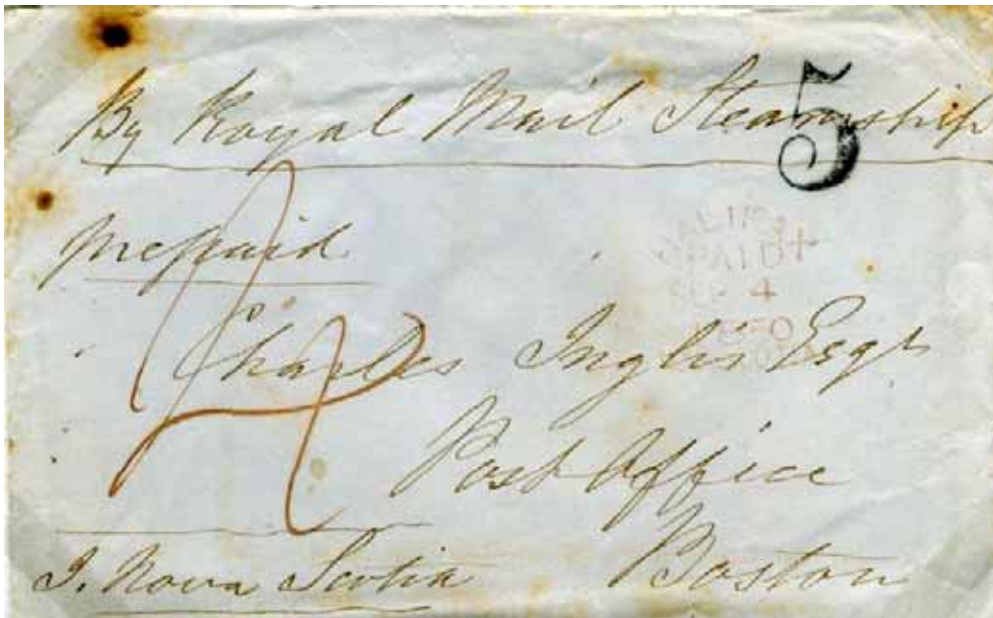 By Royal Mail Steamship
5
prepaid
PAID
SEP 4
1850
Charles Inglis Esqr
Post Office
Boston
Nova Scotia